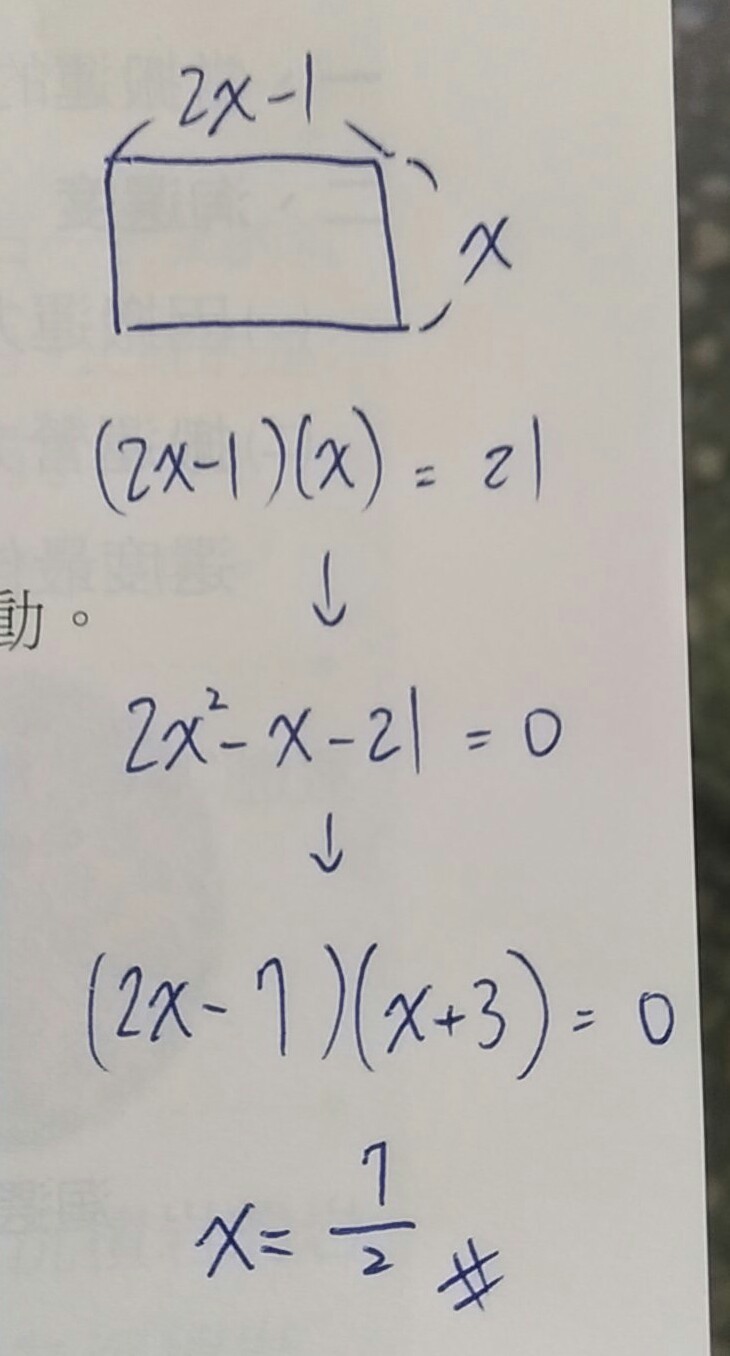 2x-1
x
(2x-1)(x) = 21
↓
動。
2x²-x-21 = 0
↓
(2x-7)(x+3) = 0
x= 7/2 #